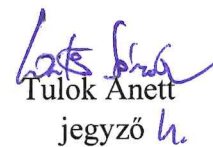 Tulok Anett
jegyző h.